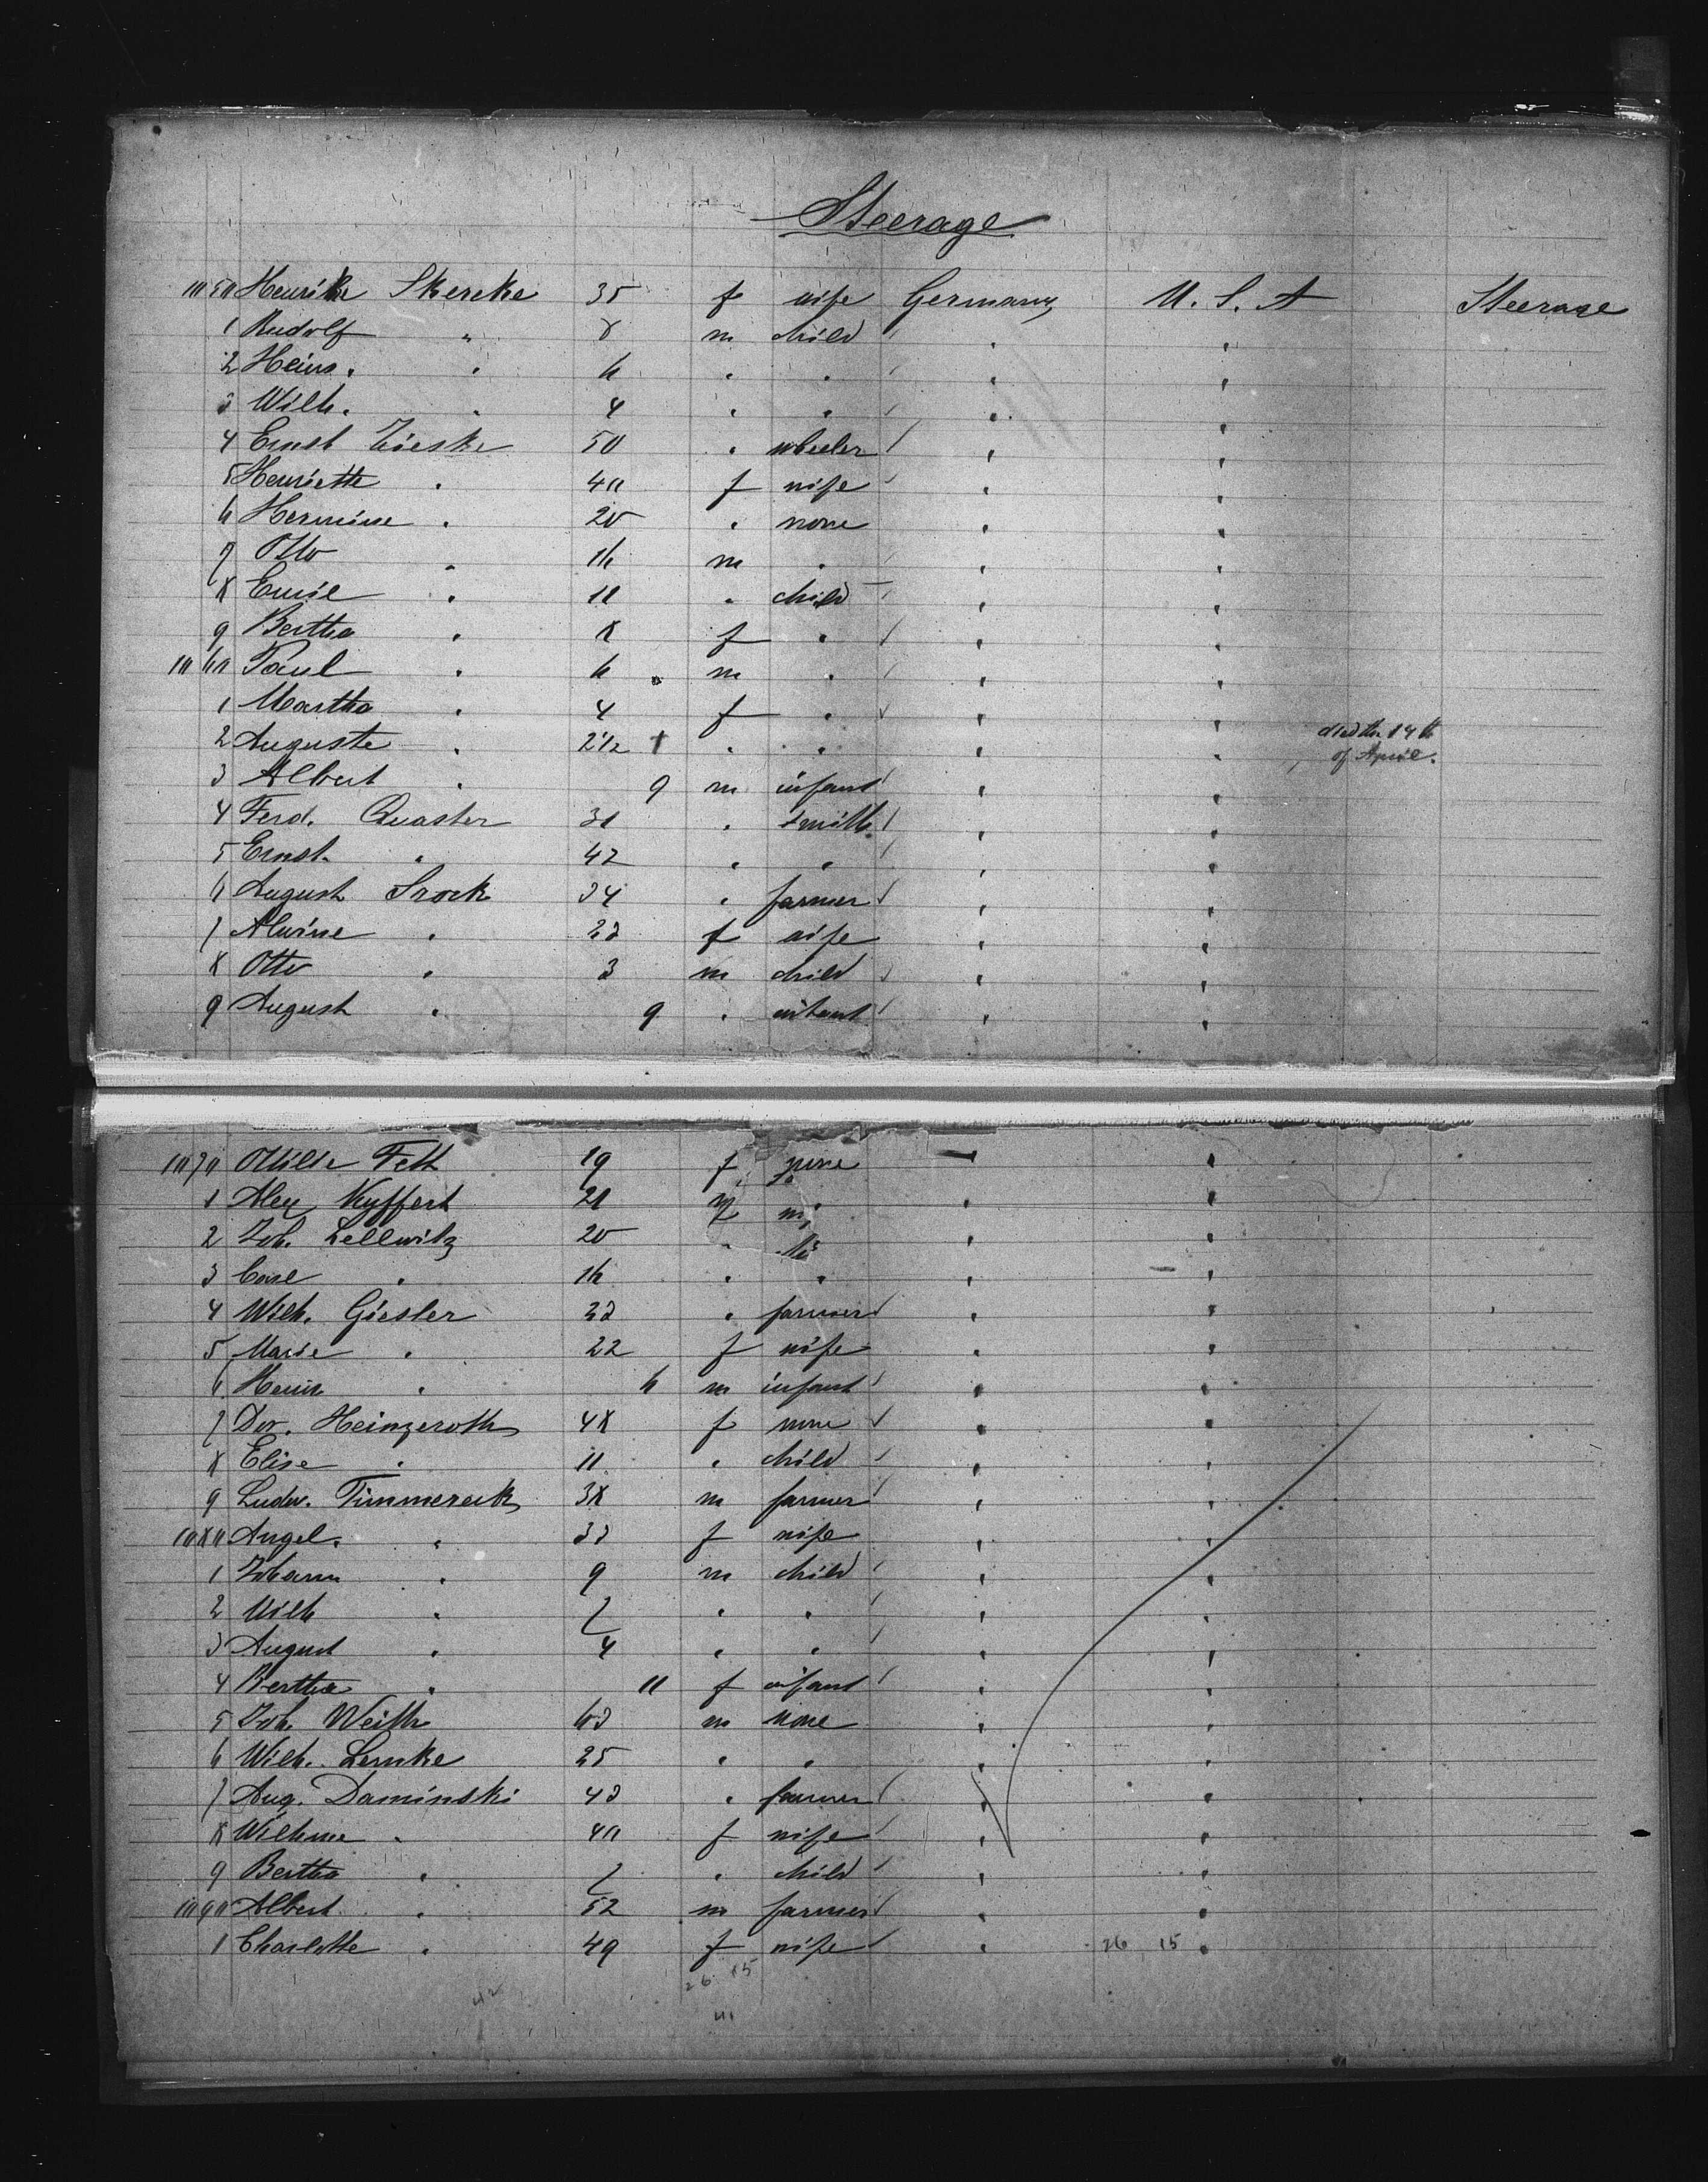 Steerage
1050 Henrike Skercke 35 f wife Germany U. S. A Steerage
1 Rudolf " 8 m child " "
2 Heinr. " 6 " " " "
3 Wilh. " 4 " " " "
4 Ernst Zieske 50 " wheeler " "
5 Henriette " 40 f wife " "
6 Hermine " 20 " none " "
7 Otto " 16 m " " "
8 Emil " 11 " child " "
9 Bertha " 8 f " " "
1060 Paul " 6 m " " "
1 Martha " 4 f " " "
2 Auguste " 2 1/2 † " " " " died the 19th
of April.
3 Albert " 9 m infant " "
4 Ferd. Quaster 31 " smith " "
5 Ernst " 42 " " " "
6 August Srock 34 " farmer " "
7 Alwine " 23 f wife " "
8 Otto " 3 m child " "
9 August " 9 " infant " "
1070 Ottilie Fett 19 f none "
1 Alex Kyffert 21 m " " "
2 Joh. Lellwitz 20 " " "
3 Carl " 16 " " " "
4 Wilh. Giesler 23 " farmer " "
5 Marie " 22 f wife " "
6 Heinr " 6 m infant " "
7 Dor. Heinzeroth 48 f none " "
8 Elise " 11 " child " "
9 Ludw. Timmereck 38 m farmer " "
1080 Angel. " 33 f wife " "
1 Johann " 9 m child " "
2 Wilh " 7 " " " "
3 August " 4 " " " "
4 Bertha " 11 f infant " "
5 Joh. Weith 63 m none " "
6 Wilh. Lemke 25 " " " "
7 Aug. Daminski 43 " farmer " "
8 Wilhme " 40 f wife " "
9 Bertha " 7 " child " "
1090 Albert " 52 m farmer " "
1 Charlotte " 49 f wife " 26 15 "
42 26 15
41